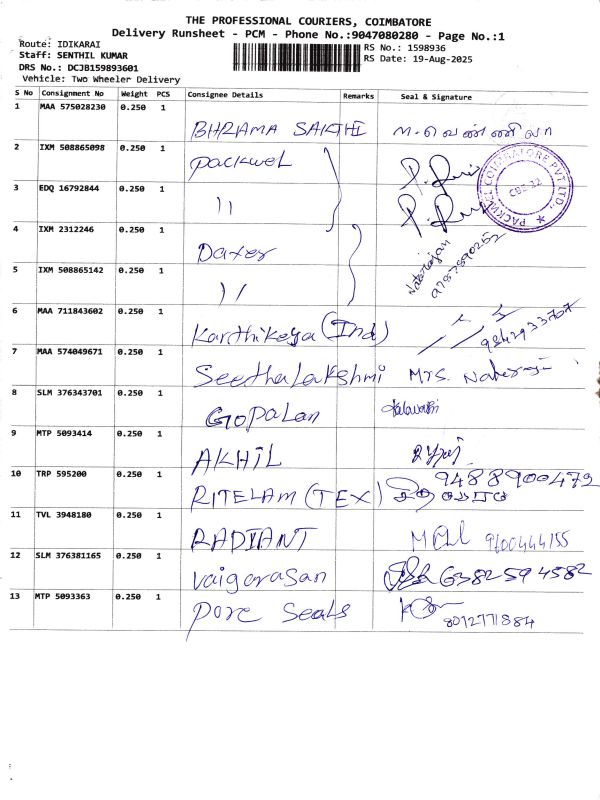 THE PROFESSIONAL COURIERS, COIMBATORE
Delivery Runsheet - PCM - Phone No.:9047080280 - Page No.:1
Route: IDIKARAI
RS No.: 1598936
Staff: SENTHIL KUMAR
RS Date: 19-Aug-2025
DRS No.: DCJB159893601
Vehicle: Two Wheeler Delivery
S No Consignment No Weight PCS Consignee Details Remarks Seal & Signature
1 MAA 575028230 0.250 1 BHRAMA SAKTHI ம.வெண்ணிலா
2 IXM 508865098 0.250 1 packwel
PACKWEL COIMBATORE PVT. LTD.,
CBE-22
3 EDQ 16792844 0.250 1 〃
4 IXM 2312246 0.250 1 Daxer Natarajan
9787590252
5 IXM 508865142 0.250 1 〃
6 MAA 711843602 0.250 1 Karthikeya (Ind) 9842933707
7 MAA 574049671 0.250 1 Seethalakshmi Mrs.
8 SLM 376343701 0.250 1 GOPALAN
9 MTP 5093414 0.250 1 AKHIL
10 TRP 595200 0.250 1 RITELAM (TEX) 9488900479
11 TVL 3948180 0.250 1 RADIANT 9600444155
12 SLM 376381165 0.250 1 vaigarasan 6382594582
13 MTP 5093363 0.250 1 pore seals 8012771884